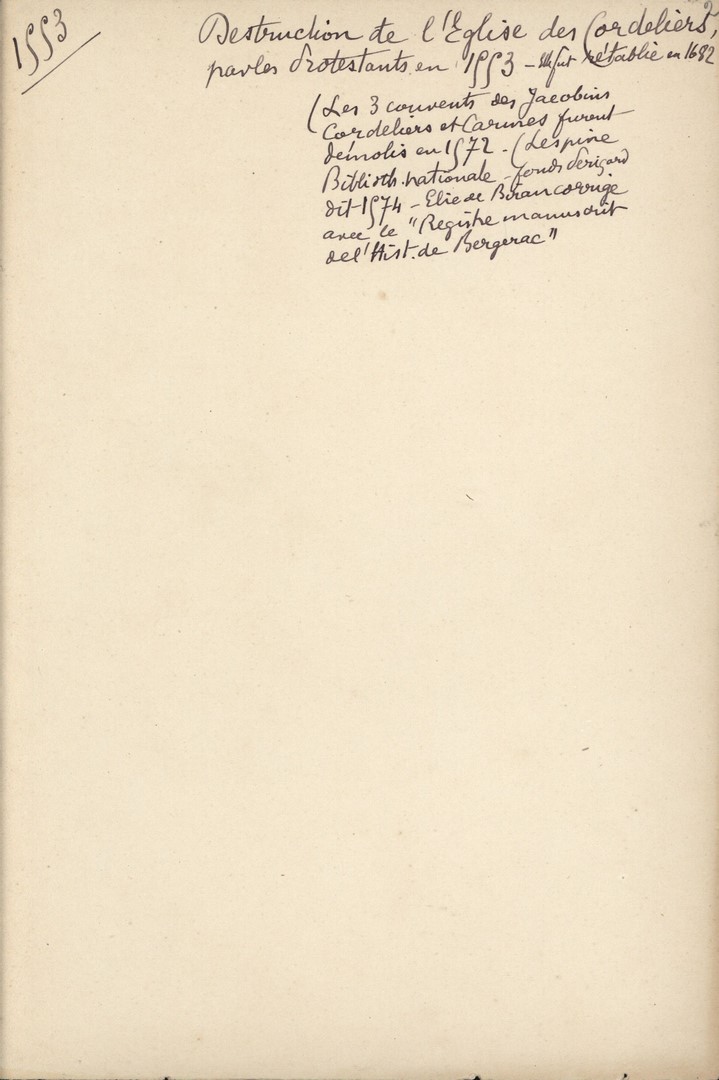 1553
Destruction de l'Eglise des Cordeliers,
par les Protestants en 1553 - Elle fut rétablie en 1682
(Les 3 couvents des Jacobins
Cordeliers et Carmes furent
démolis en 1572 - (Lespine
Biblioth. nationale - fonds Périgord
dit 1574 - Elie de Biran corrige
avec le "Registre manuscrit
de l'Hist. de Bergerac"